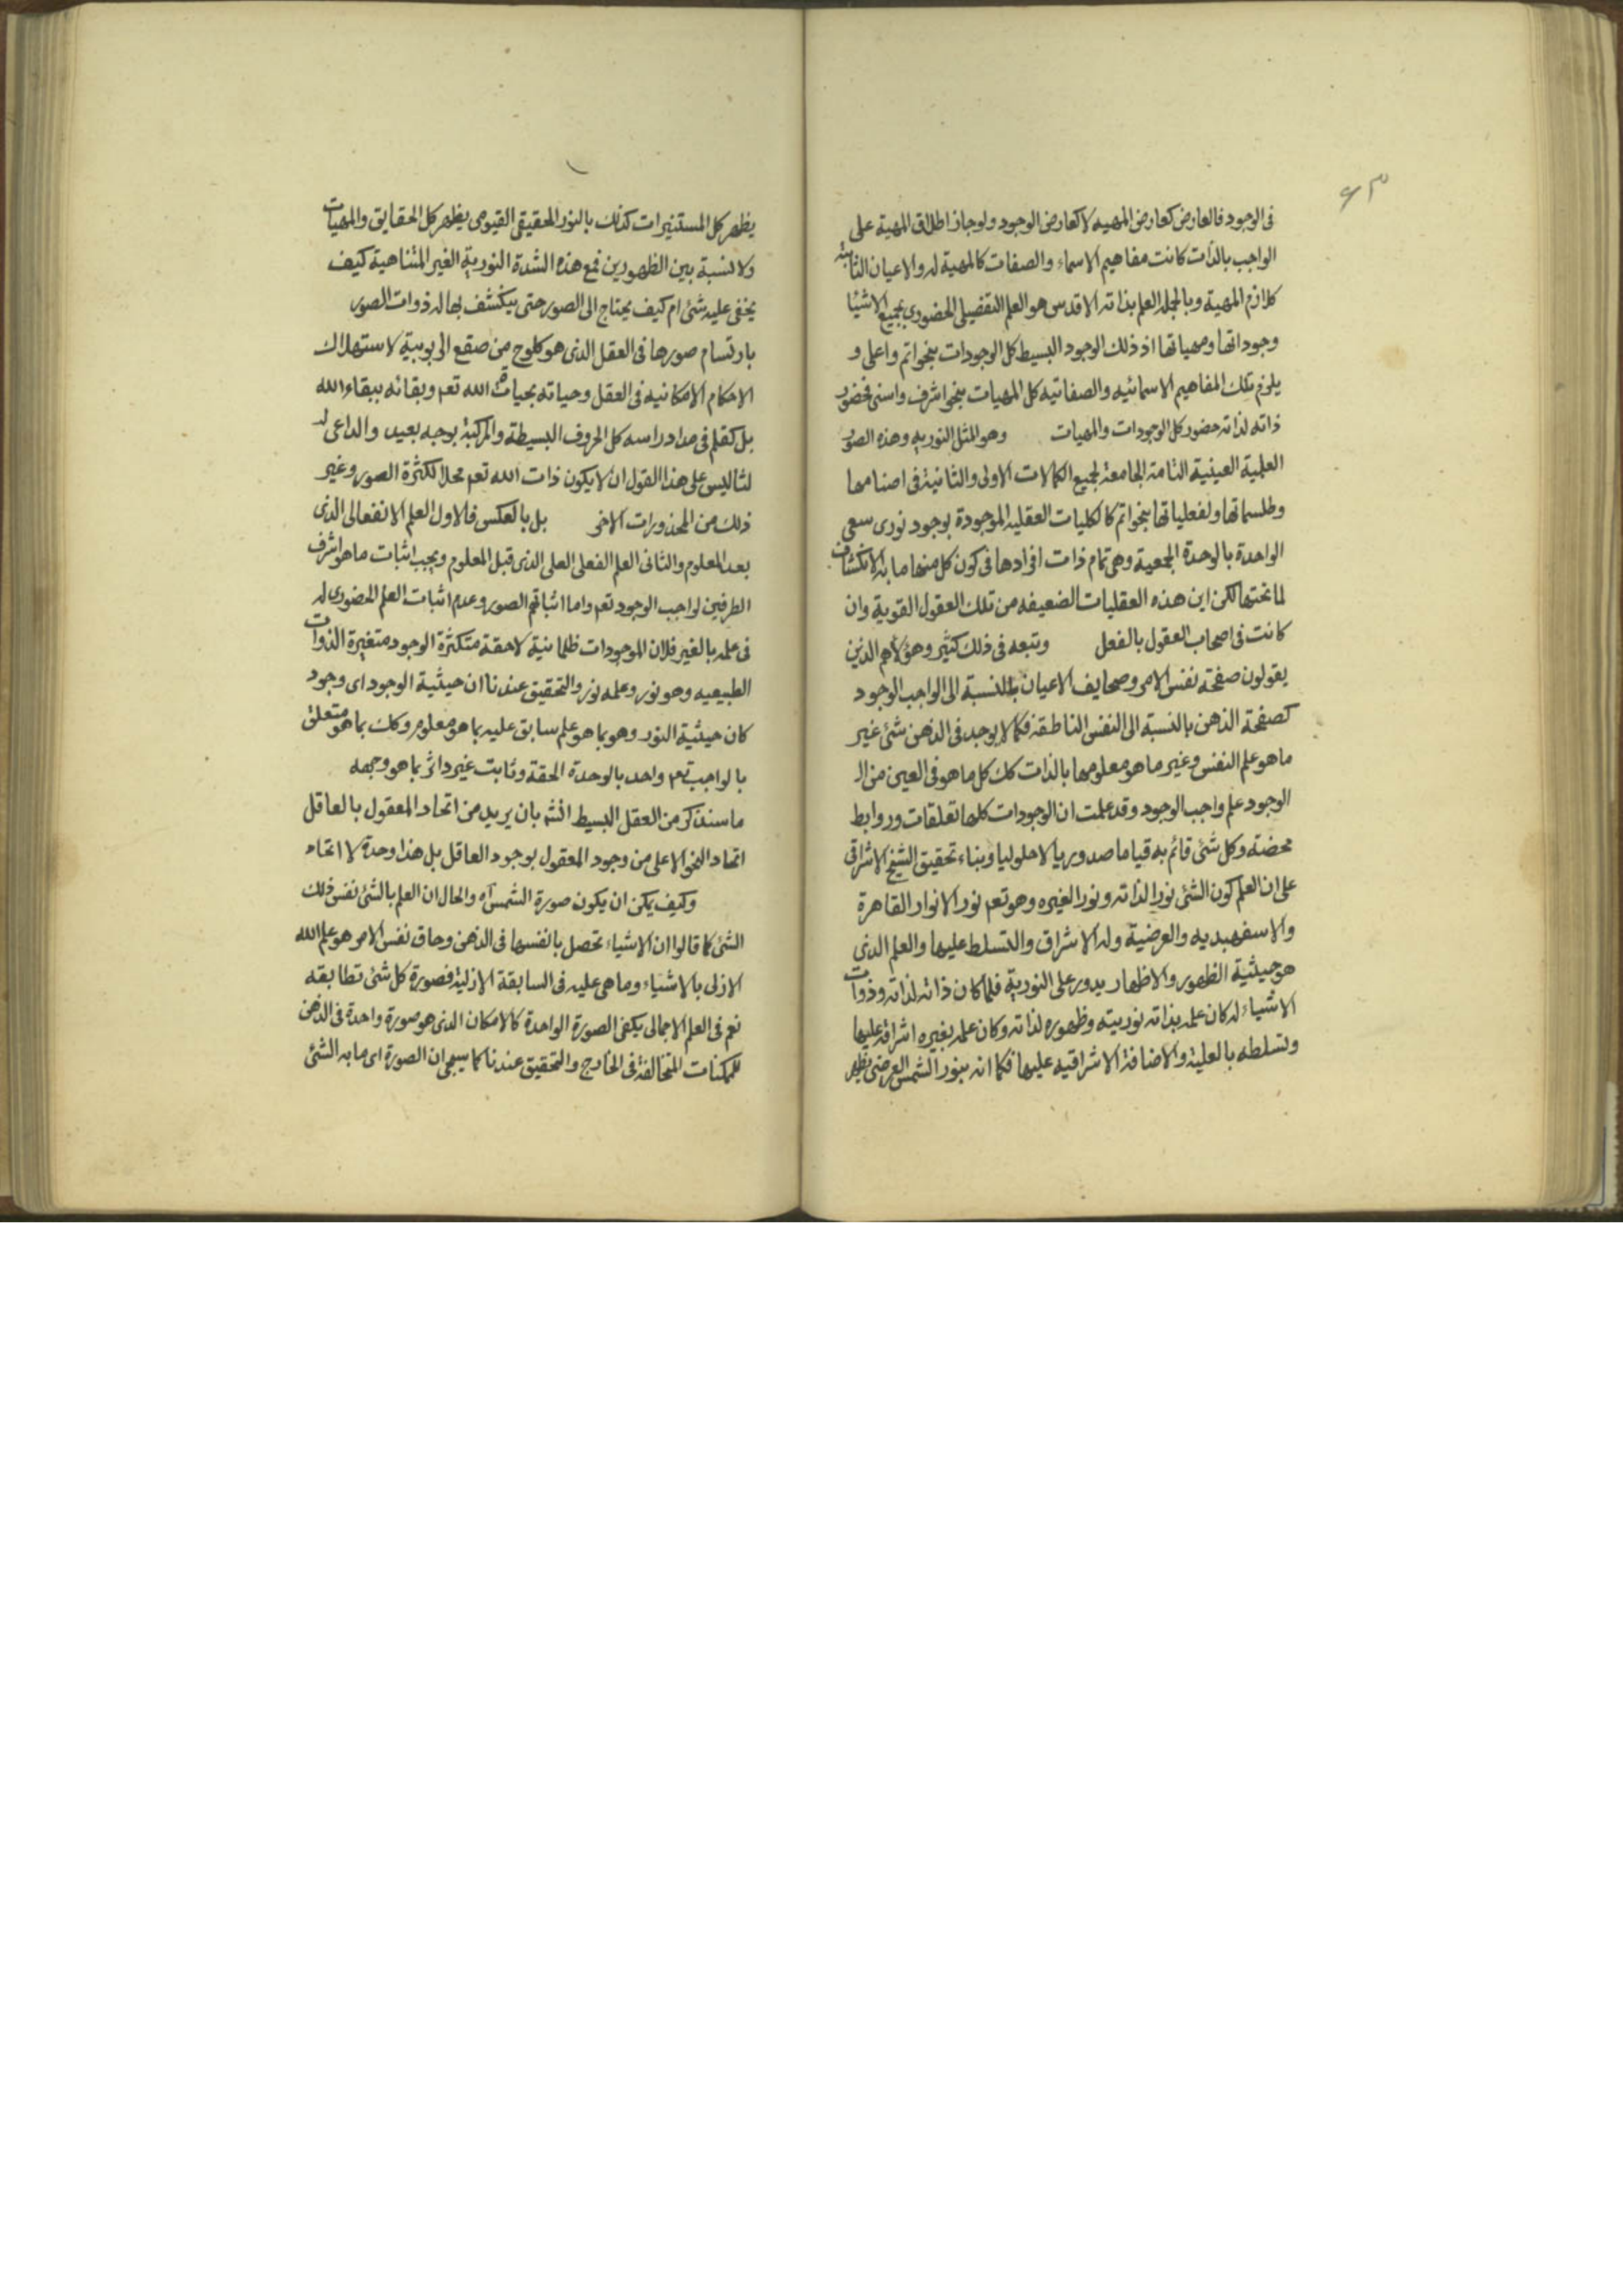 ۶۳
فی الوجود فالعارض کعارض المهیه لا کعارض الوجود ولو جاز اطلاق المهیة علی
الواجب بالذات کانت مفاهیم الاسماء والصفات کالمهیة له والاعیان الثابتة
کلازم المهیة وبالجمله العلم بذاته الاقدس هو العلم التفصیلی الحضوری بجمیع الاشیا
وجوداتها ومهیاتها اذ ذلک الوجود البسیط کل الوجودات بنحو اتم واعلی و
یلزم تلک المفاهیم الاسمائیه والصفاتیه کل المهیات بنحو اشرف واسنی فحضور
ذاته لذاته حضور کل الوجودات والمهیات وهو المثل النوریه وهذه الصور
العلمیة العینیة التامة الجامعة لجمیع الکمالات الاولی والثانیة فی اصنامها
وطلسماتها ولفعلیاتها بنحو اتم کالکلیات العقلیه الموجودة بوجود نوری سعی
الواحدة بالوحدة الجمعیة وهی تمام ذات افرادها فی کون کل منها ما به الانکشاف
لما تحتها لکن این هذه العقلیات الضعیفه من تلک العقول القویة وان
کانت فی اصحاب العقول بالفعل وتبعه فی ذلک کثیر وهؤلاء هم الذین
یقولون صفحة نفس الامر وصحایف الاعیان بالنسبة الی الواجب الوجود
کصفحة الذهن بالنسبة الی النفس الناطقة فکما لا یوجد فی الذهن شئ غیر
ما هو علم النفس وغیر ما هو معلومها بالذات کک کل ما هو فی العین من الـ
الوجود علم واجب الوجود وقد علمت ان الوجودات کلها تعلقات وروابط
محضة وکل شئ قائم به قیاما صدوریا لا حلولیا وبناء تحقیق الشیخ الاشراقی
علی ان العلم کون الشئ نورا لذاته ونورا لغیره وهو تعم نور الانوار القاهرة
والاسفهبدیه والعرضیة وله الاشراق والتسلط علیها والعلم الذی
هو حیثیة الظهور والاظهار یدور علی النوریة فلما کان ذاته لذاته وذوات
الاشیاء له کان علمه بذاته نوریته وظهوره لذاته وکان علمه بغیره اشراقه علیها
وتسلطه بالعلیة والاضافة الاشراقیه علیها فکما انه بنور الشمس العرضی یظهر
یظهر کل المستنیرات کذلک بالنور الحقیقی القیومی یظهر کل الحقایق والمهیات
ولا نسبة بین الظهورین فمع هذه الشدة النوریة الغیر المتناهیة کیف
یخفی علیه شئ ام کیف یحتاج الی الصور حتی ینکشف بها له ذوات الصور
بارتسام صورها فی العقل الذی هو کلوح من صقع الربوبیة لاستهلاک
الاحکام الامکانیه فی العقل وحیاته بحیاة الله تعم وبقائه ببقاء الله
بل کقلم فی مداد راسه کل الحروف البسیطة والمرکبة بوجه بعید والداعی له
لثالیس علی هذا القول ان لا یکون ذات الله تعم محلا لکثرة الصور وغیر
ذلک من المحذورات الاخر بل بالعکس فالاول العلم الانفعالی الذی
بعد المعلوم والثانی العلم الفعلی العلی الذی قبل المعلوم ویجب اثبات ما هو اشرف
الطرفین لواجب الوجود تعم واما اثباتهم الصور وعدم اثبات العلم الحضوری له
فی علمه بالغیر فلان الموجودات ظلمانیة لاحقة متکثرة الوجود متغیرة الذوات
الطبیعیه وهو نور وعلمه نور والتحقیق عندنا ان حیثیة الوجود ای وجود
کان حیثیة النور وهو بما هو علم سابق علیه بما هو معلوم وکک بما هو متعلق
بالواجب تعم واحد بالوحدة الحقة وثابت غیر داثر بما هو وجهه
ما سنذکر من العقل البسیط انشم بان یرید من اتحاد المعقول بالعاقل
اتحاد النحو الاعلی من وجود المعقول بوجود العاقل بل هذا وحدة لا اتحاد
وکیف یمکن ان یکون صورة الشمس آه والحال ان العلم بالشئ نفس ذلک
الشئ کما قالوا ان الاشیاء تحصل بانفسها فی الذهن وحاق نفس الامر هو علم الله
الازلی بالاشیاء وما هی علیه فی السابقة الازلیة فصورة کل شئ تطابقه
نعم فی العلم الاجمالی یکفی الصورة الواحدة کالامکان الذی هو صورة واحدة فی الذهن
للممکنات المتخالفة فی الخارج والتحقیق عندنا کما سیجئ ان الصورة ای ما به الشئ